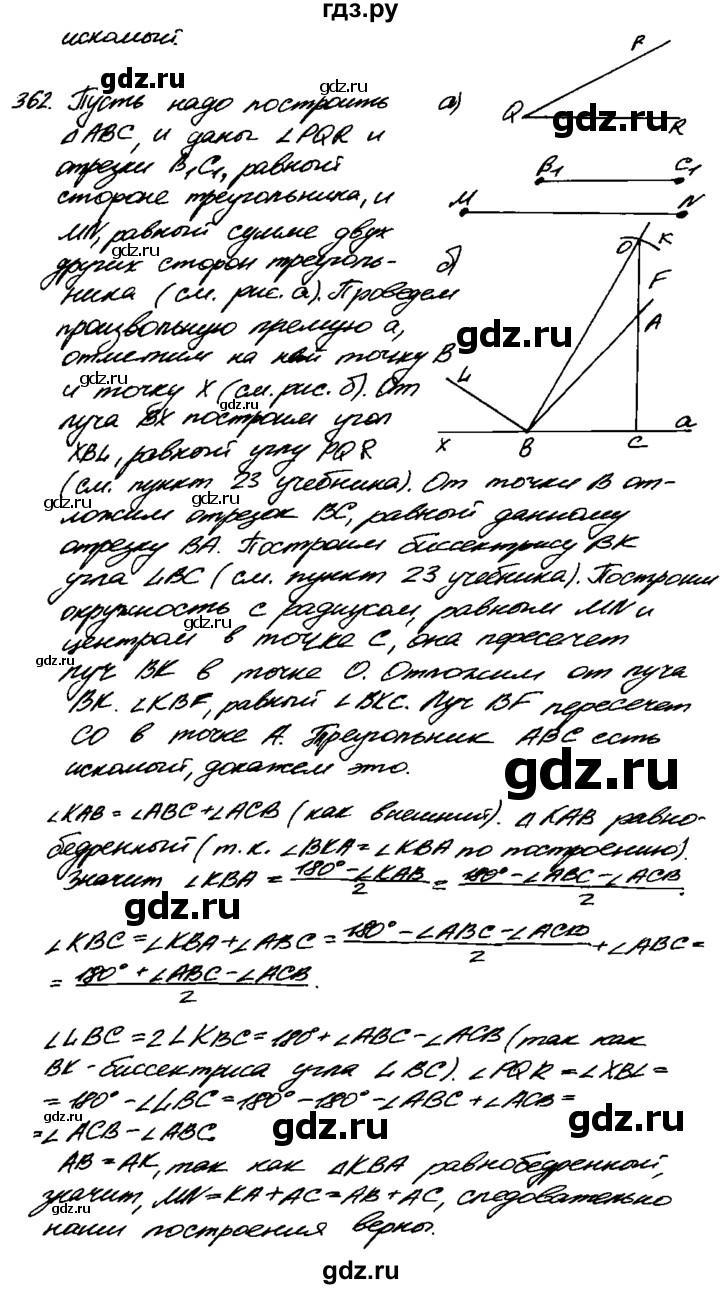 гдз.ру
искомый.
gdz.ru
gdz.ru
362. Пусть надо построить
△ABC, и даны ∠PQR и
отрезки B₁C₁, равный
стороне треугольника, и
MN, равный сумме двух
других сторон треуголь-
ника (см. рис. а). Проведем
произвольную прямую а,
отметим на ней точку B
и точку X (см. рис. б). От
луча BX построим угол
XBL, равный углу PQR
а)
P
Q
R
gdz.ru
B₁
C₁
M
N
б)
O
K
F
A
L
X
B
C
a
gdz.ru
gdz.ru
gdz.ru
gdz.ru
gdz.ru
(см. пункт 23 учебника). От точки B от-
ложим отрезок BC, равный данному
отрезку BA. Построим биссектрису BK
угла LBC (см. пункт 23 учебника). Построим
окружность с радиусом, равным MN и
центром в точке C, она пересечет
луч BK в точке O. Отложим от луча
BK. ∠KBF, равный ∠BKC. Луч BF пересечет
CO в точке A. Треугольник ABC есть
искомый, докажем это.
gdz.ru
gdz.ru
gdz.ru
gdz.ru
gdz.ru
∠KAB = ∠ABC + ∠ACB (как внешний). △KAB равно-
бедренный (т.к. ∠BKA = ∠KBA по построению).
Значит ∠KBA = (180° - ∠KAB)/2 = (180° - ∠ABC - ∠ACB)/2.
gdz.ru
gdz.ru
∠KBC = ∠KBA + ∠ABC = (180° - ∠ABC - ∠ACB)/2 + ∠ABC =
= (180° + ∠ABC - ∠ACB)/2.
∠LBC = 2∠KBC = 180° + ∠ABC - ∠ACB (так как
BK - биссектриса угла LBC). ∠PQR = ∠XBL =
= 180° - ∠LBC = 180° - 180° - ∠ABC + ∠ACB =
= ∠ACB - ∠ABC.
gdz.ru
gdz.ru
gdz.ru
AB = AK, так как △KBA равнобедренный,
значит, MN = KA + AC = AB + AC, следовательно
наши построения верны.
gdz.ru